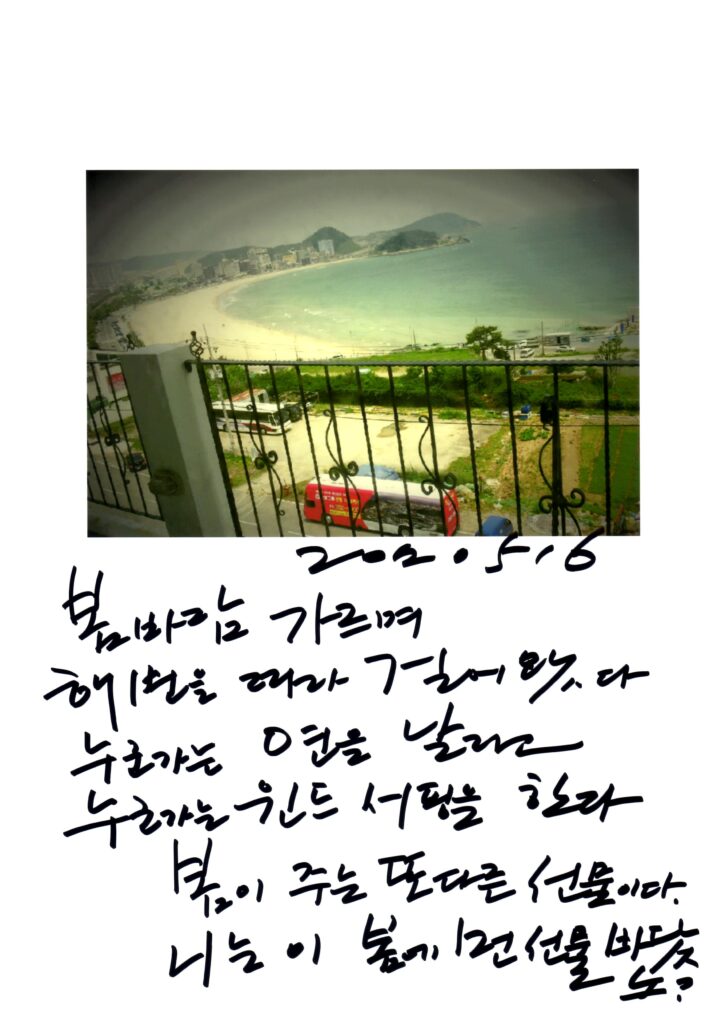 2020.5.6
봄바람 가르며
해변을 따라 걸어왔다
누군가는 연을 날리고
누군가는 윈드서핑을 한다
봄이 주는 또다른 선물이다.
니는 이 봄에 선물 받았노?